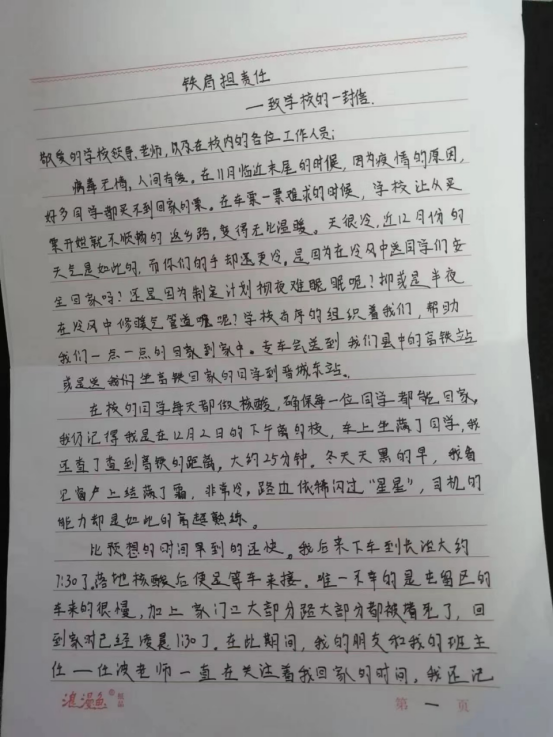 铁肩担责任
—致学校的一封信
敬爱的学校领导、老师,以及在校内的各位工作人员:
病毒无情,人间有爱。在11月临近末尾的时候,因为疫情的原因,
好多同学都买不到回家的票。在车票一票难求的时候,学校让从买
票开始就不顺畅的返乡路,变得无比温暖。天很冷,近12月份的
天气是如此的,而你们的手却还更冷,是因为在冷风中送同学们安
全回家吗?还是因为制定计划彻夜难眠呢?抑或是半夜
在冷风中修暖气管道呢?学校有序的组织着我们,帮助
我们一点一点的回家到家中。专车会送到我们县中的高铁站
或是送我们坐高铁回家的同学到晋城东站。
在校的同学每天都做核酸,确保每一位同学都能回家。
我仍记得我是在12月2日的下午离的校,车上坐满了同学,我
还查了查到高铁的距离,大约25分钟。冬天天黑的早,我看
见窗户上结满了霜,非常冷,路边依稀闪过“星星”,司机的
能力却是如此的高超熟练。
比预想的时间早到的还快。我后来下车到长治大约
7:30了,落地核酸后便是等车来接。唯一不幸的是屯留区的
车来的很慢,加上家门口大部分路大部分都被堵死了,回
到家时已经凌晨1:30了。在此期间,我的朋友和我的班主
任—任波老师一直在关注着我回家的时间,我还记
浪漫鱼®
第 一 页